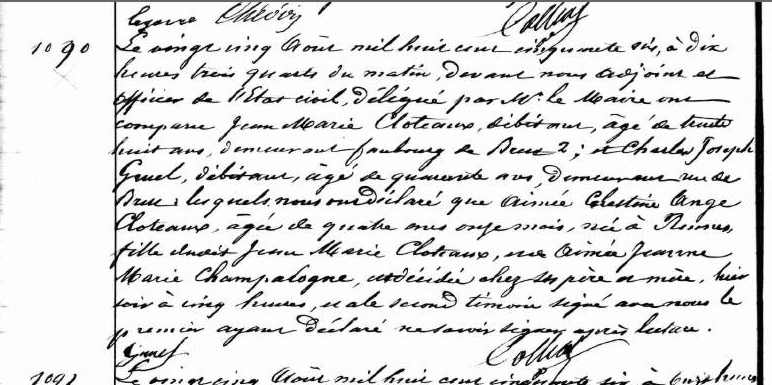 Collial
1090
Le vingt cinq Août mil huit cent cinquante six, à dix
heures trois quarts du matin, devant nous adjoint et
officier de l'Etat civil, délégué par Mr. le Maire ont
comparu Jean Marie Cloteaux, débitant, âgé de trente
huit ans, demeurant faubourg de Brest 2; et Charles Joseph
Gruel, débitant, âgé de quarante ans, demeurant rue de
Brest; lesquels nous ont déclaré que Aimée Célestine Ange
Cloteaux, âgée de quatre ans onze mois, née à Rennes,
fille dudit Jean Marie Cloteaux, et de Aimée Jeanne
Marie Champalogne, est décédée chez ses père et mère, hier
soir à cinq heures, et a le second témoin signé avec nous le
premier ayant déclaré ne savoir signer, après lecture.
Gruel Collial
1091
Le vingt cinq Août mil huit cent cinquante six à onze heures